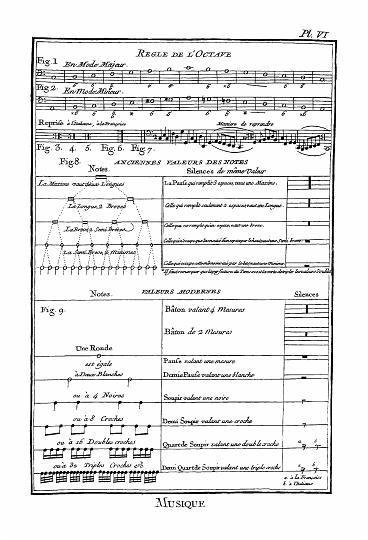 Pl. VI
REGLE DE L'OCTAVE
Fig. 1 En Mode Majeur
Fig. 2. En Mode Mineur.
Reprise à l'Italienne, à la Françoise Maniere de reprendre
Fig. 3. 4. 5. Fig. 6. Fig. 7.
Fig. 8. ANCIENNES VALEURS DES NOTES
Notes. Silences de même Valeur
La Maxime vaut deux Longues
La Pause qui remplit 3 espaces, vaut une Maxime.
La Longue, 2 Breves
Celle qui remplit seulement 2 espaces, vaut une Longue.
La Breve, 2 Semi-Breves
Celle qui ne remplit qu'un espace, vaut une breve.
La Semi-Breve, 2 Minimes
Notes. VALEURS MODERNES Silences
Fig. 9.
Bâton valant 4 Mesures
Bâton de 2 Mesures
Une Ronde
est égale
Pause valant une mesure
à Deux Blanches
Demie Pause valant une blanche
ou à 4 Noires
Soupir valant une noire
ou à 8 Croches
Demi Soupir valant une croche
ou à 16 Doubles croches
Quart de Soupir valant une double croche
ou à 32 Triples Croches &c
Demi Quart de Soupir valant une triple croche
a. à la Françoise
b. à l'Italienne
MUSIQUE.